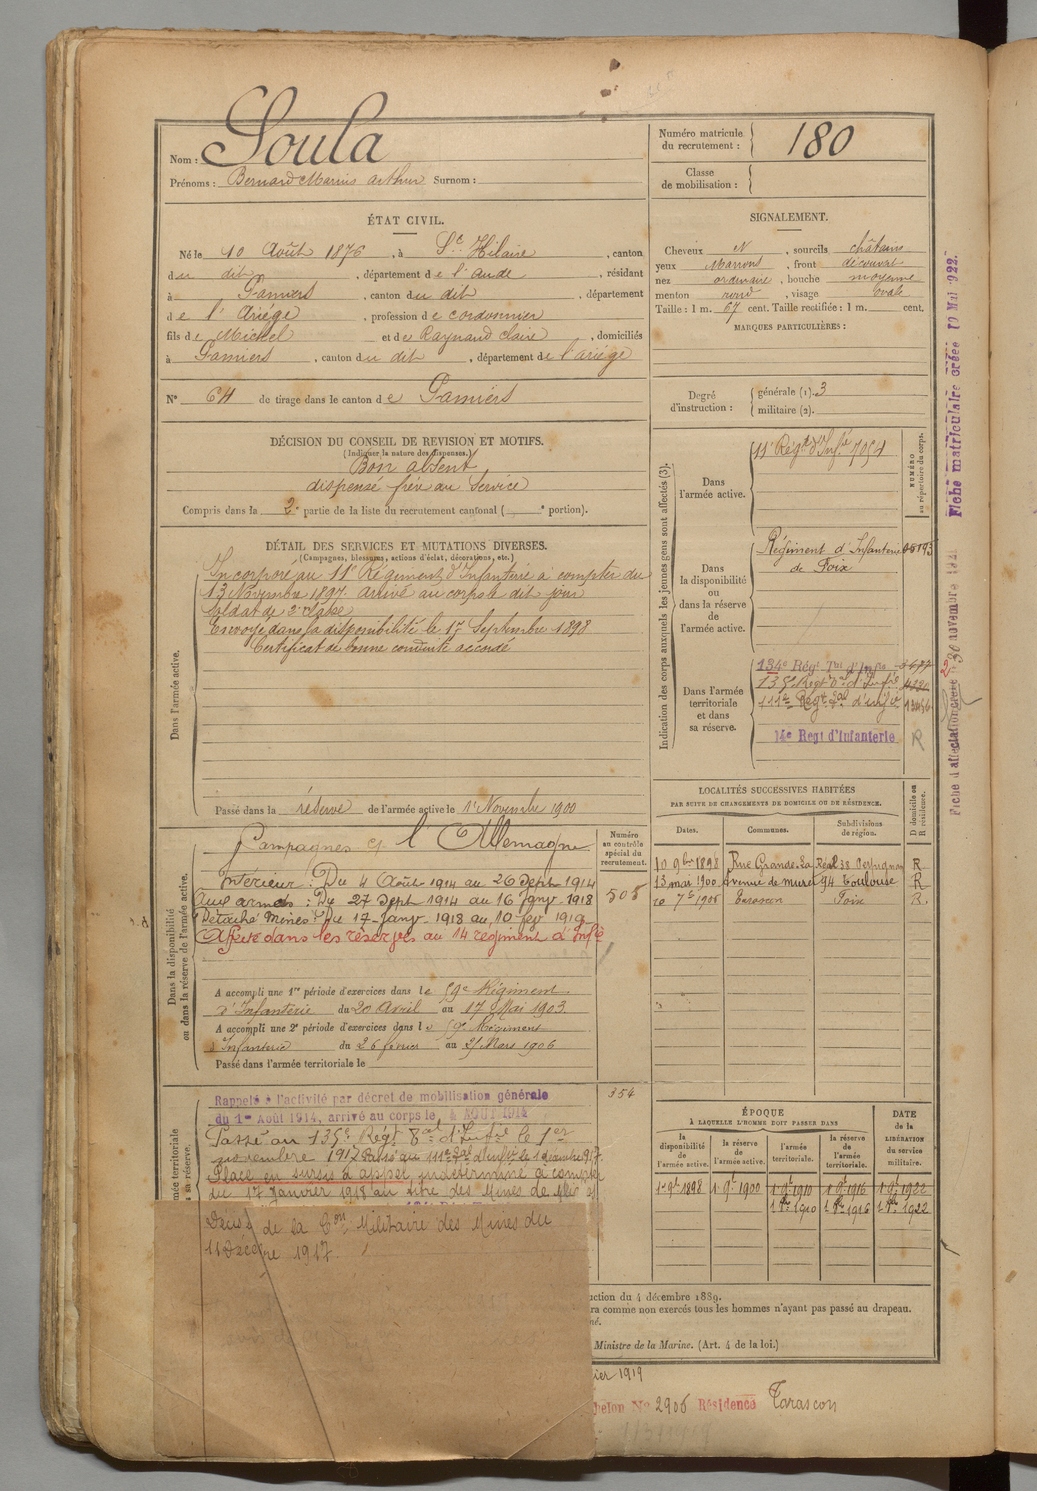 Nom : Soula
Prénoms : Bernard Marius Arthur Surnom :
Numéro matricule du recrutement : 180
Classe de mobilisation :
ÉTAT CIVIL.
Né le 10 Août 1876, à St Hilaire, canton
du dit, département de l'Aude, résidant
à Pamiers, canton du dit, département
de l'Ariége, profession de cordonnier
fils de Michel et de Raynaud Claire, domiciliés
à Pamiers, canton du dit, département de l'ariége
N° 64 de tirage dans le canton de Pamiers
SIGNALEMENT.
Cheveux N, sourcils châtains
yeux Marrons, front découvert
nez ordinaire, bouche moyenne
menton rond, visage ovale
Taille : 1 m. 67 cent. Taille rectifiée : 1 m. cent.
MARQUES PARTICULIÈRES :
Degré d'instruction : générale (1). 3
militaire (2).
DÉCISION DU CONSEIL DE REVISION ET MOTIFS.
(Indiquer la nature des dispenses.)
Bon absent
dispensé frère au service
Compris dans la 2e partie de la liste du recrutement cantonal ( e portion).
DÉTAIL DES SERVICES ET MUTATIONS DIVERSES.
(Campagnes, blessures, actions d'éclat, décorations, etc.)
Dans l'armée active.
Incorporé au 11e Régiment d'Infanterie à compter du
13 Novembre 1897. arrivé au corps le dit jour
soldat de 2e classe
Envoyé dans la disponibilité le 17 Septembre 1898
Certificat de bonne conduite accordé
Passé dans la réserve de l'armée active le 1er Novembre 1900
Indication des corps auxquels les jeunes gens sont affectés (3).
NUMÉRO au répertoire du corps.
Dans l'armée active.
11e Régt d'Infie 7054
Dans la disponibilité ou dans la réserve de l'armée active.
Régiment d'Infanterie
de Foix
Dans l'armée territoriale et dans sa réserve.
134e Régt Tal d'Infie
135e Régt Tal d'Infie
111e Régt Tal d'Infie
14e Regt d'Infanterie R
LOCALITÉS SUCCESSIVES HABITÉES
PAR SUITE DE CHANGEMENTS DE DOMICILE OU DE RÉSIDENCE.
D domicile ou R résidence.
Dates. Communes. Subdivisions de région.
10 9bre 1898 Rue Grande-la Réal 38 Perpignan R
13 mai 1900 Avenue de muret 94 Toulouse R
1906 Tarascon Foix R.
Dans la disponibilité ou dans la réserve de l'armée active.
Numéro au contrôle spécial du recrutement.
508
Campagnes c/ l'Allemagne
Intérieur : Du 4 Août 1914 au 26 Sept 1914
Aux armées : Du 27 Sept 1914 au 16 Janv. 1918
Détaché Mines : Du 17 Janv 1918 au 10 fév 1919
Affecté dans les réserves au 14 régiment d'Infie
A accompli une 1re période d'exercices dans le 59e Régiment
d'Infanterie du 20 Avril au 17 Mai 1903.
A accompli une 2e période d'exercices dans le 59e Régiment
d'Infanterie du 26 février au 25 Mars 1906
Passé dans l'armée territoriale le
354
Rappelé à l'activité par décret de mobilisation générale
du 1er Août 1914, arrivé au corps le, 4 AOUT 1914
Passé au 135e Régt Tal d'Infie le 1er
novembre 1912 Passé au 111e Tal d'infie le 1 décembre 1917.
Placé en sursis d'appel indéterminé à compter
du 17 Janvier 1918 au titre des Mines de
de la Con Militaire des Mines du
11 Décembre 1917.
ÉPOQUE
À LAQUELLE L'HOMME DOIT PASSER DANS
la disponibilité de l'armée active. la réserve de l'armée active. l'armée territoriale. la réserve de l'armée territoriale.
DATE de la LIBÉRATION du service militaire.
1 9e 1898 1 9e 1900 1 9e 1910 1 9e 1916 1 9e 1922
1910 1916 1922
uction du 4 décembre 1889.
ra comme non exercés tous les hommes n'ayant pas passé au drapeau.
né.
Ministre de la Marine. (Art. 4 de la loi.)
ier 1919
helon No 2906 Résidence Tarascon
Fiche matriculaire créée 10 Mai 1922.